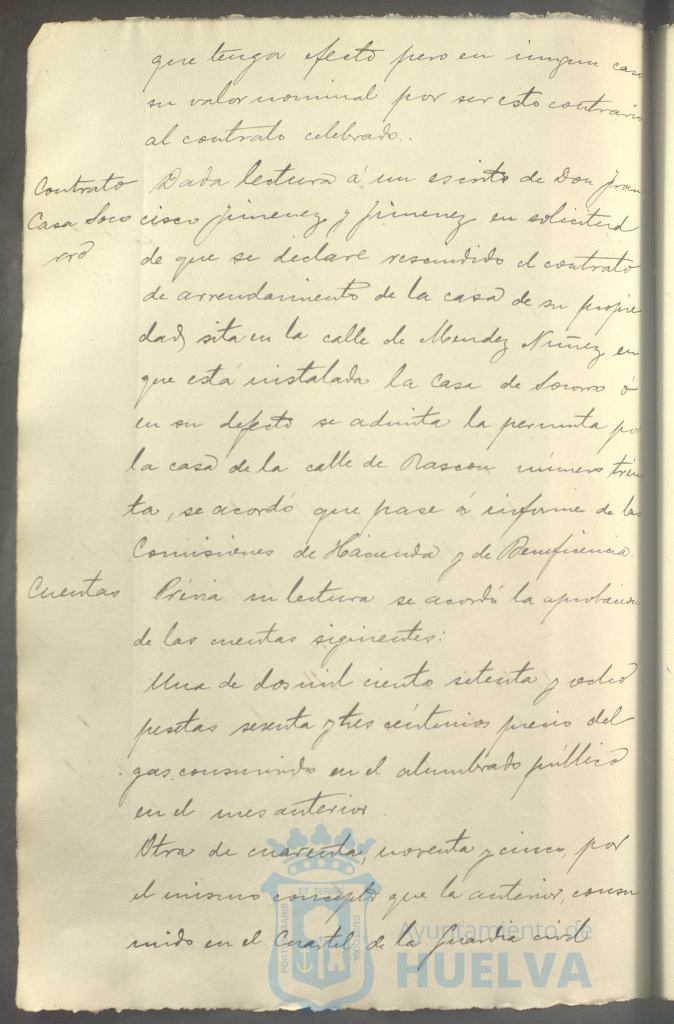 que tenga efecto pero en ningun caso
su valor nominal por ser esto contrario
al contrato celebrado.
Contrato
Casa Soco
rro
Dada lectura á un escrito de Don Fran
cisco Jimenez y Jimenez en solicitud
de que se declare rescindido el contrato
de arrendamiento de la casa de su propie
dad, sita en la calle de Mendez Nuñez en
que está instalada la Casa de Socorro ó
en su defecto se admita la permuta por
la casa de la calle de Rascon número trein
ta, se acordó que pase á informe de las
Comisiones de Hacienda y de Beneficencia.
Cuentas
Prévia su lectura se acordó la aprobacion
de las cuentas siguientes:
Una de dos mil ciento setenta y ocho
pesetas sesenta y tres céntimos precio del
gas consumido en el alumbrado público
en el mes anterior
Otra de cuarenta, noventa y cinco, por
el mismo concepto que la anterior, consu
mido en el Cuartel de la Guardia civil
PORTUS MARIS
ET TERRE
CUSTODIA
Ayuntamiento de
HUELVA